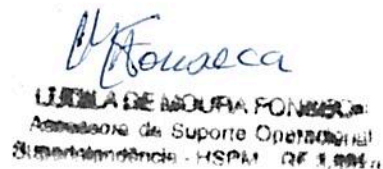 MFonseca
LUDILA DE MOURA FONSECA
Assessora de Suporte Operacional
Superintendência - HSPM